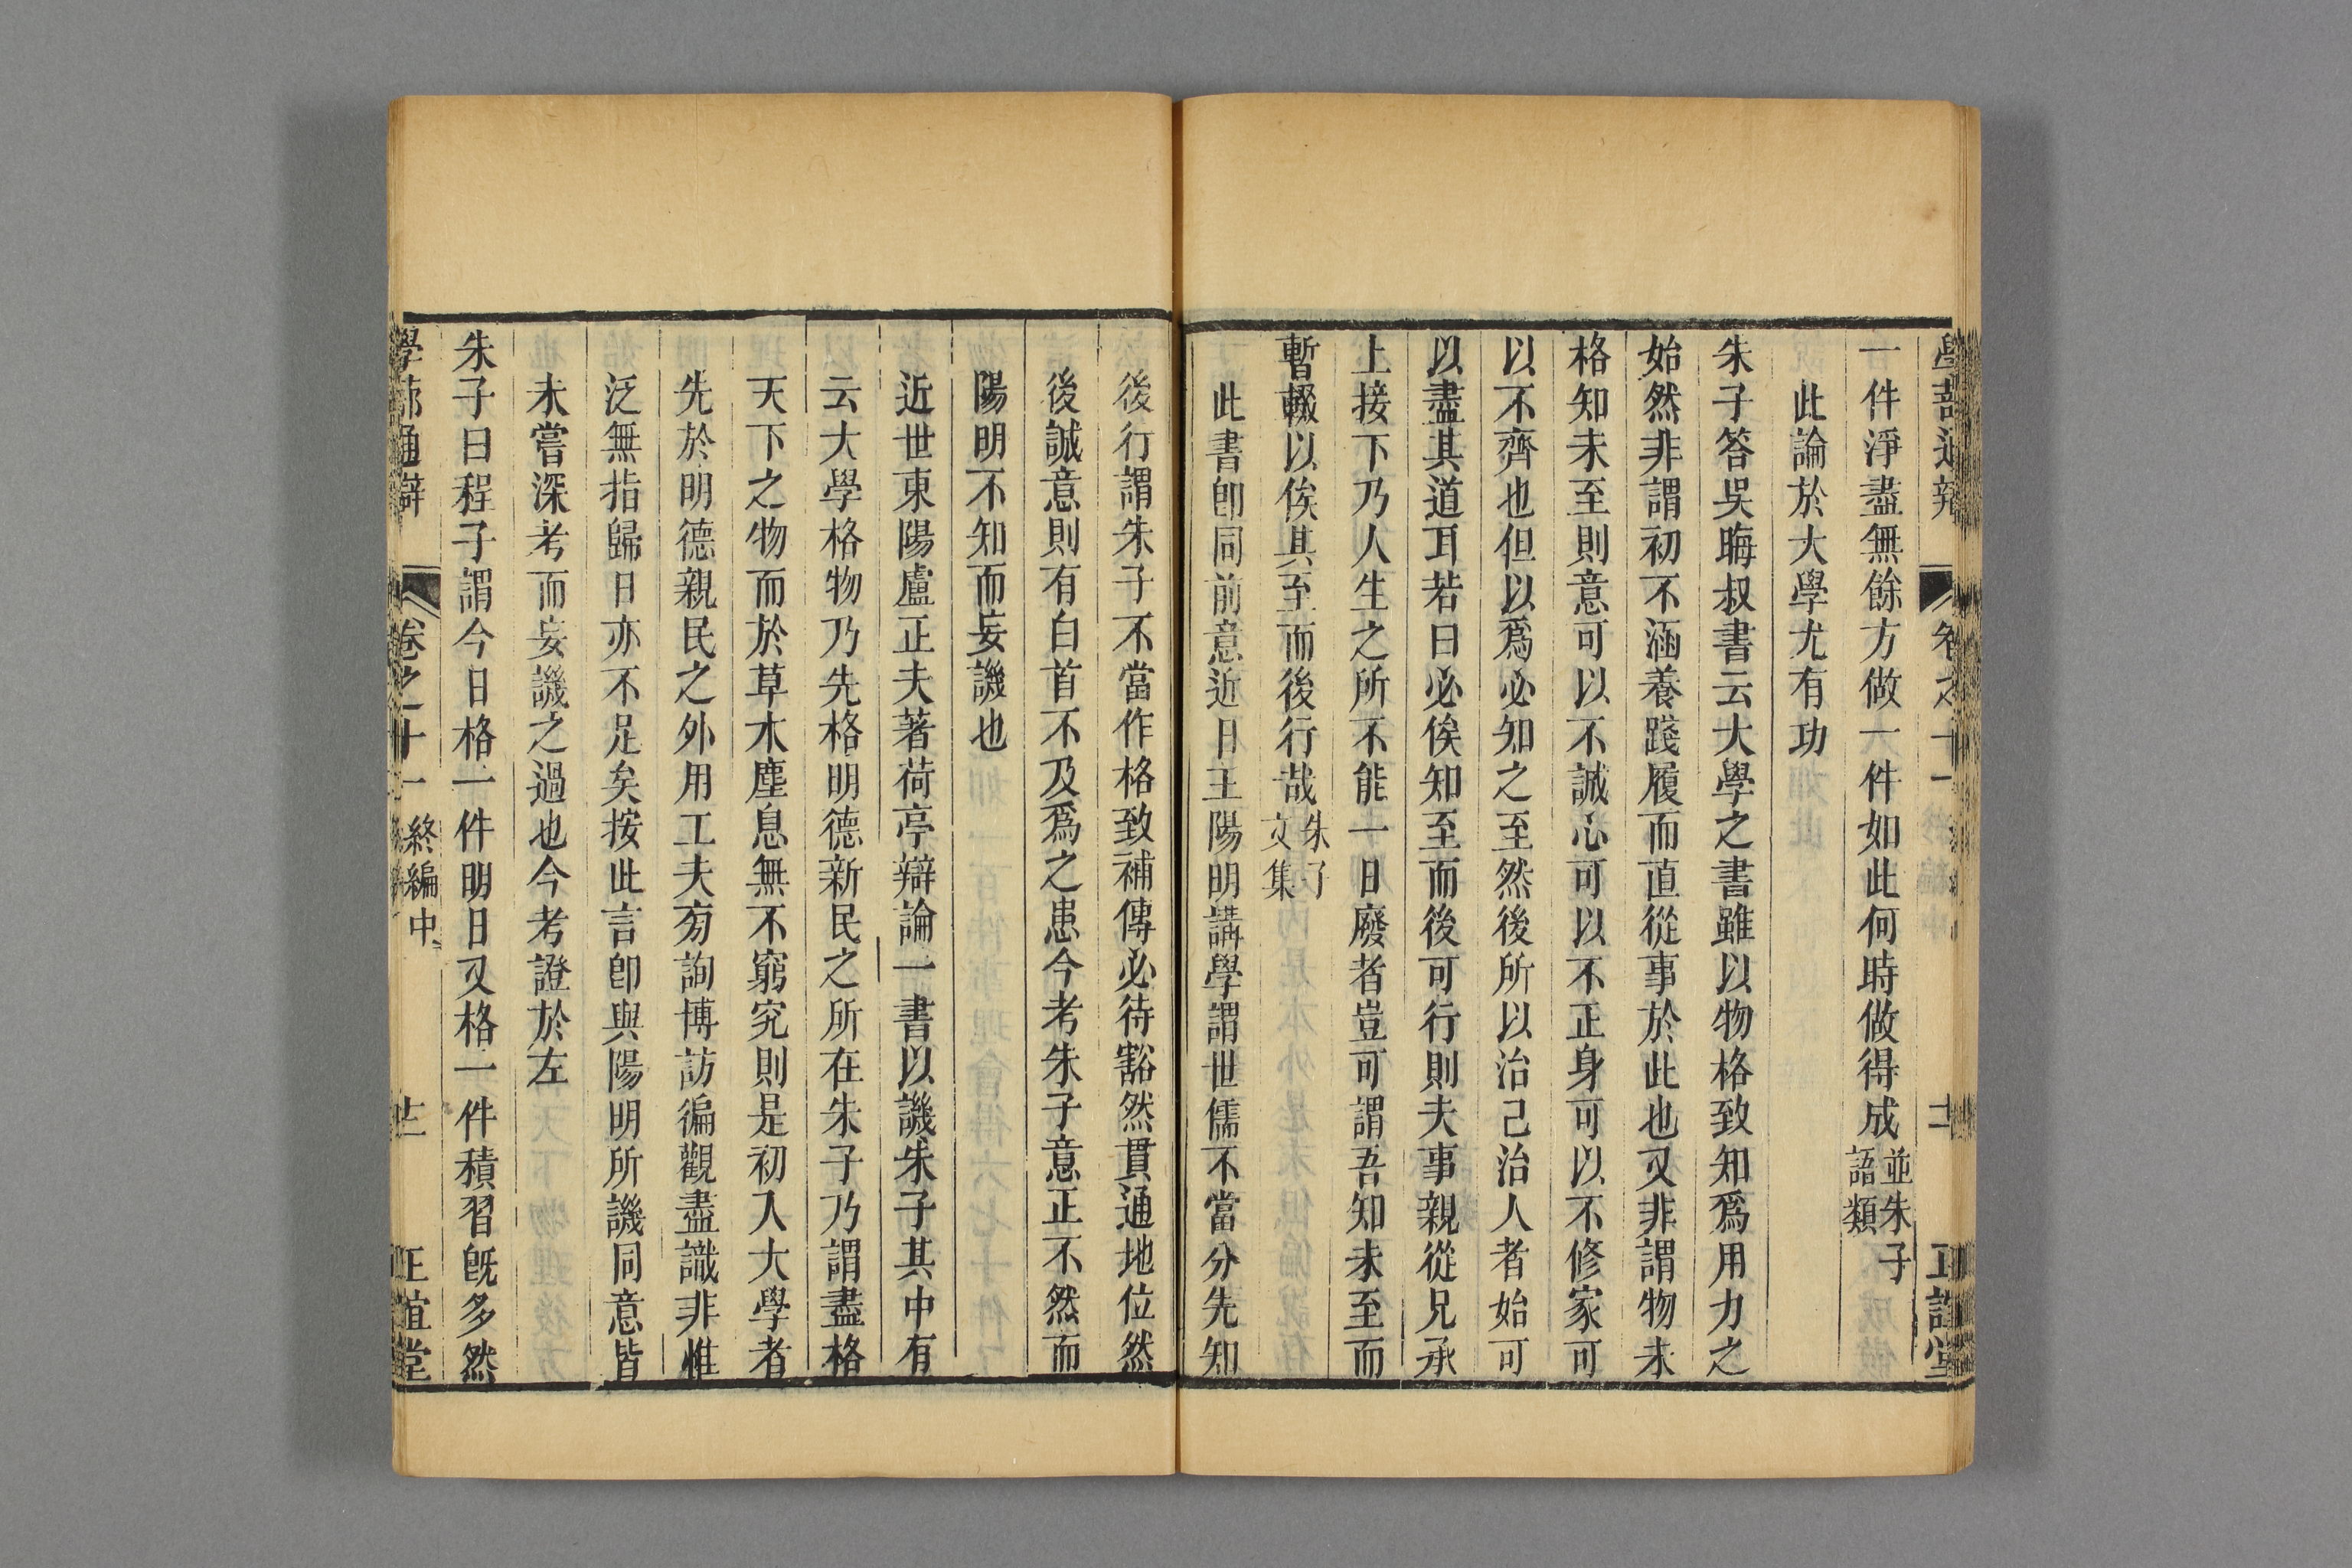 一件淨盡無餘方做一件如此何時做得成並朱子語類
此論於大學尤有功
朱子答吳晦叔書云大學之書雖以物格致知爲用力之
始然非謂初不涵養踐履而直從事於此也又非謂物未
格知未至則意可以不誠心可以不正身可以不修家可
以不齊也但以爲必知之至然後所以治己治人者始可
以盡其道耳若曰必俟知至而後可行則夫事親從兄承
上接下乃人生之所不能一日廢者豈可謂吾知未至而
暫輟以俟其至而後行哉朱子文集
此書卽同前意近日王陽明講學謂世儒不當分先知
後行謂朱子不當作格致補傳必待豁然貫通地位然
後誠意則有白首不及爲之患今考朱子意正不然而
陽明不知而妄譏也
近世東陽盧正夫著荷亭辯論一書以譏朱子其中有
云大學格物乃先格明德新民之所在朱子乃謂盡格
天下之物而於草木塵息無不窮究則是初入大學者
先於明德親民之外用工夫㫄詢博訪徧觀盡識非惟
泛無指歸日亦不足矣按此言卽與陽明所譏同意皆
未嘗深考而妄譏之過也今考證於左
朱子曰程子謂今日格一件明日又格一件積習旣多然
學蔀通辯 卷之十一 終編中 正誼堂